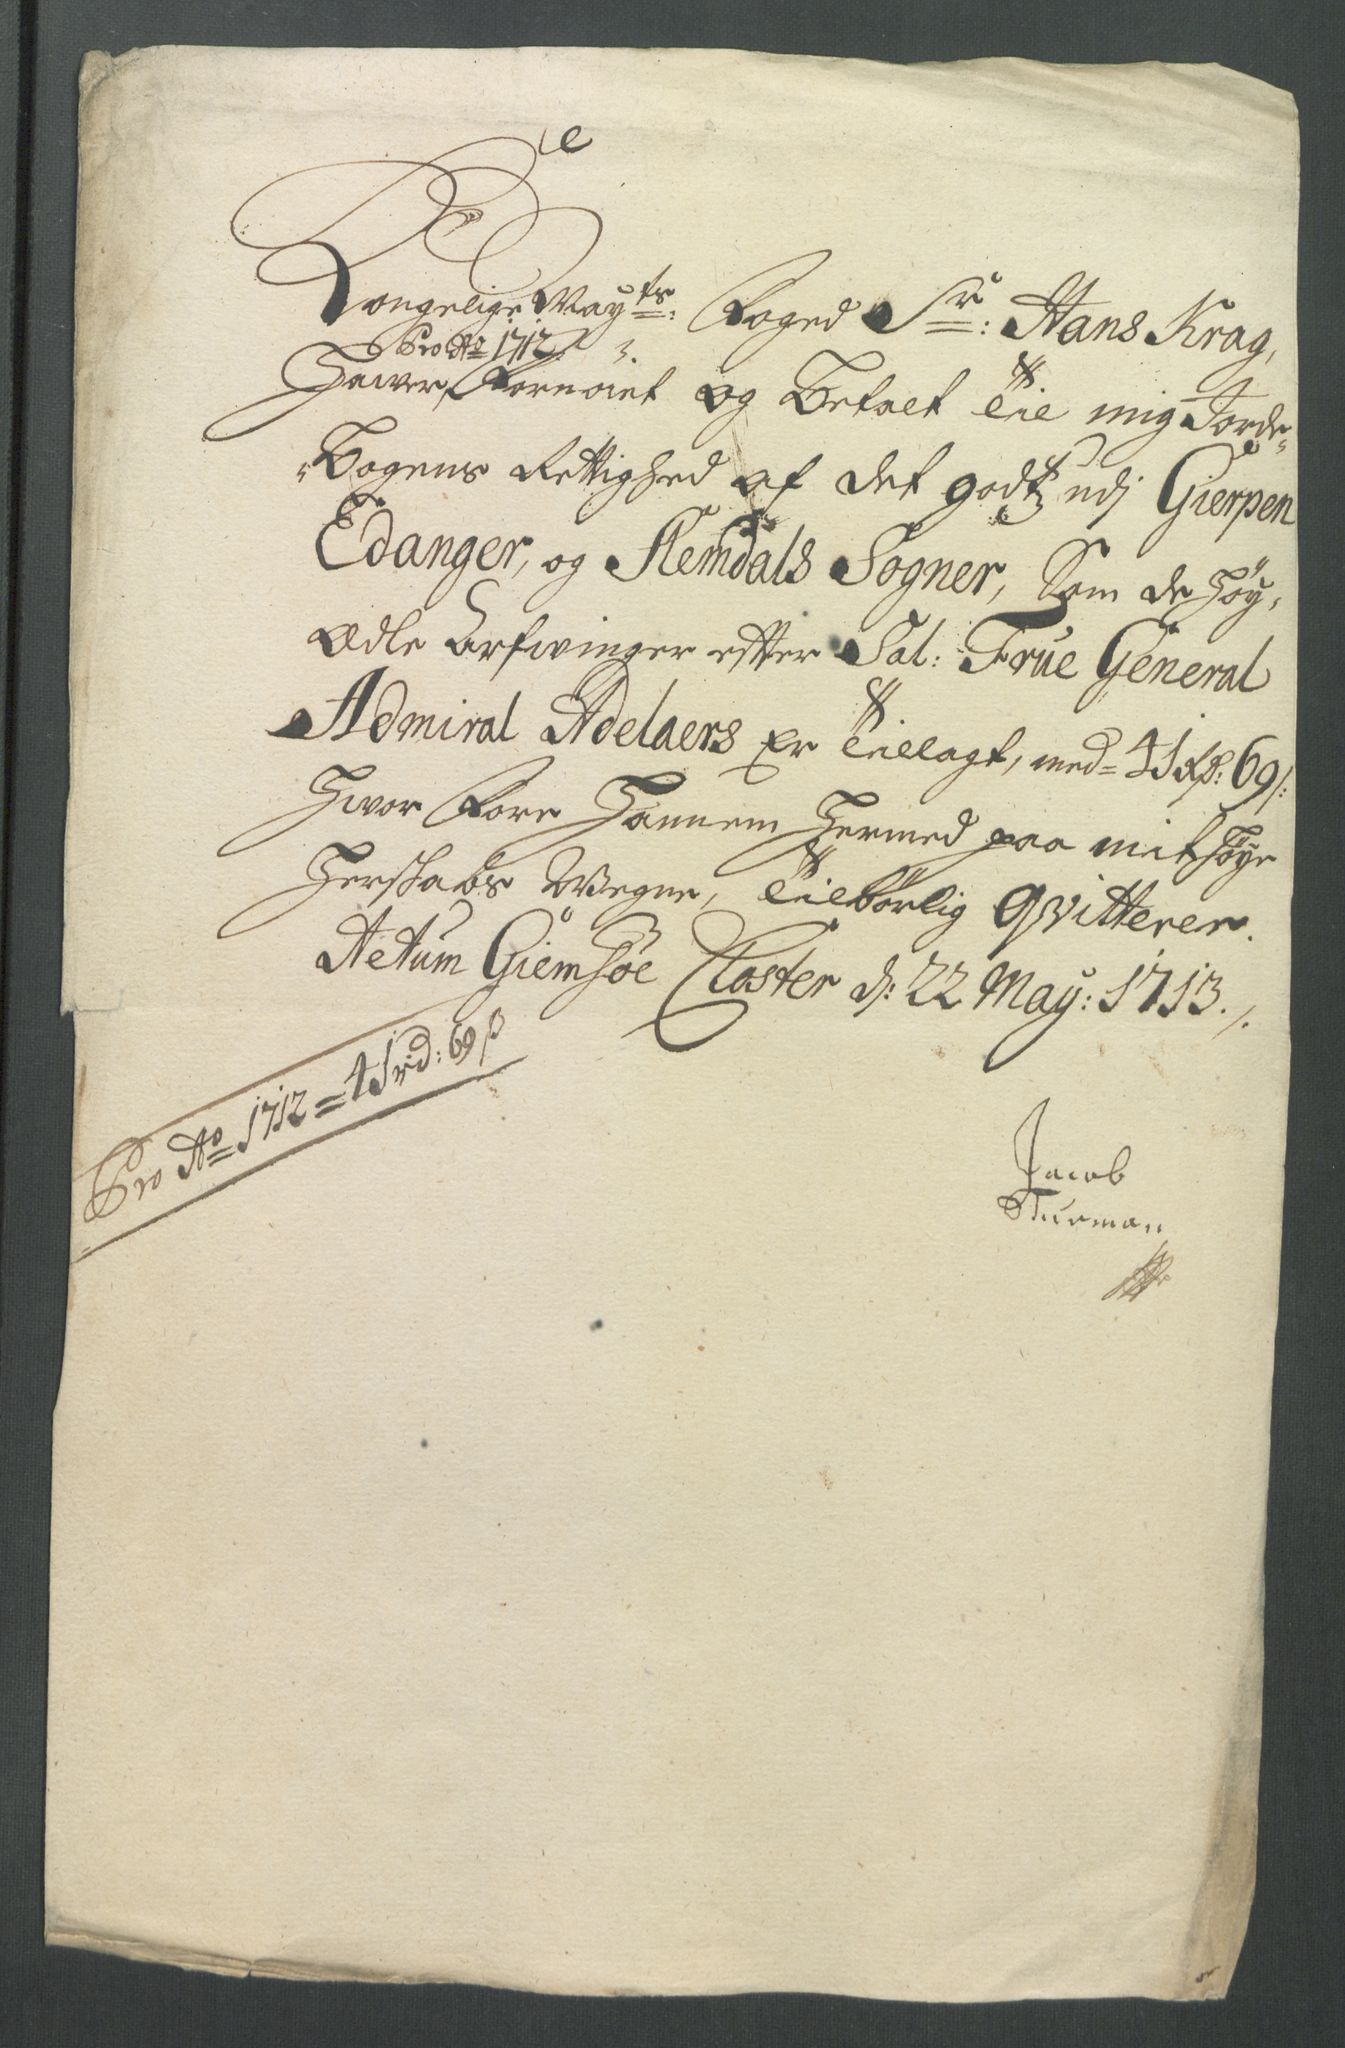 Kongelige Mayts: Foged Sr: Hans Krag,
Pro Ao 1712
Hawer Fornöiet og Betalt Til mig Jorde-
Bogens Rettighed af det godtz udj Gierpen
Edanger, og Slemdals Sogner, Som de Höy,
Ædle Arfwinger efter Sal: Frue General
Admiral Adelaers Er Tillagt, med 41 Rdr: 69 s:
Hvor Fore Hannem Hermed paa mit Höye
Herskabs Wegne, Tilbörlig Qvitterer.
Actum Giemsöe Closter d: 22 May: 1713./.
Pro Ao 1712 = 41 rd: 69 ß
Jacob
Sturman